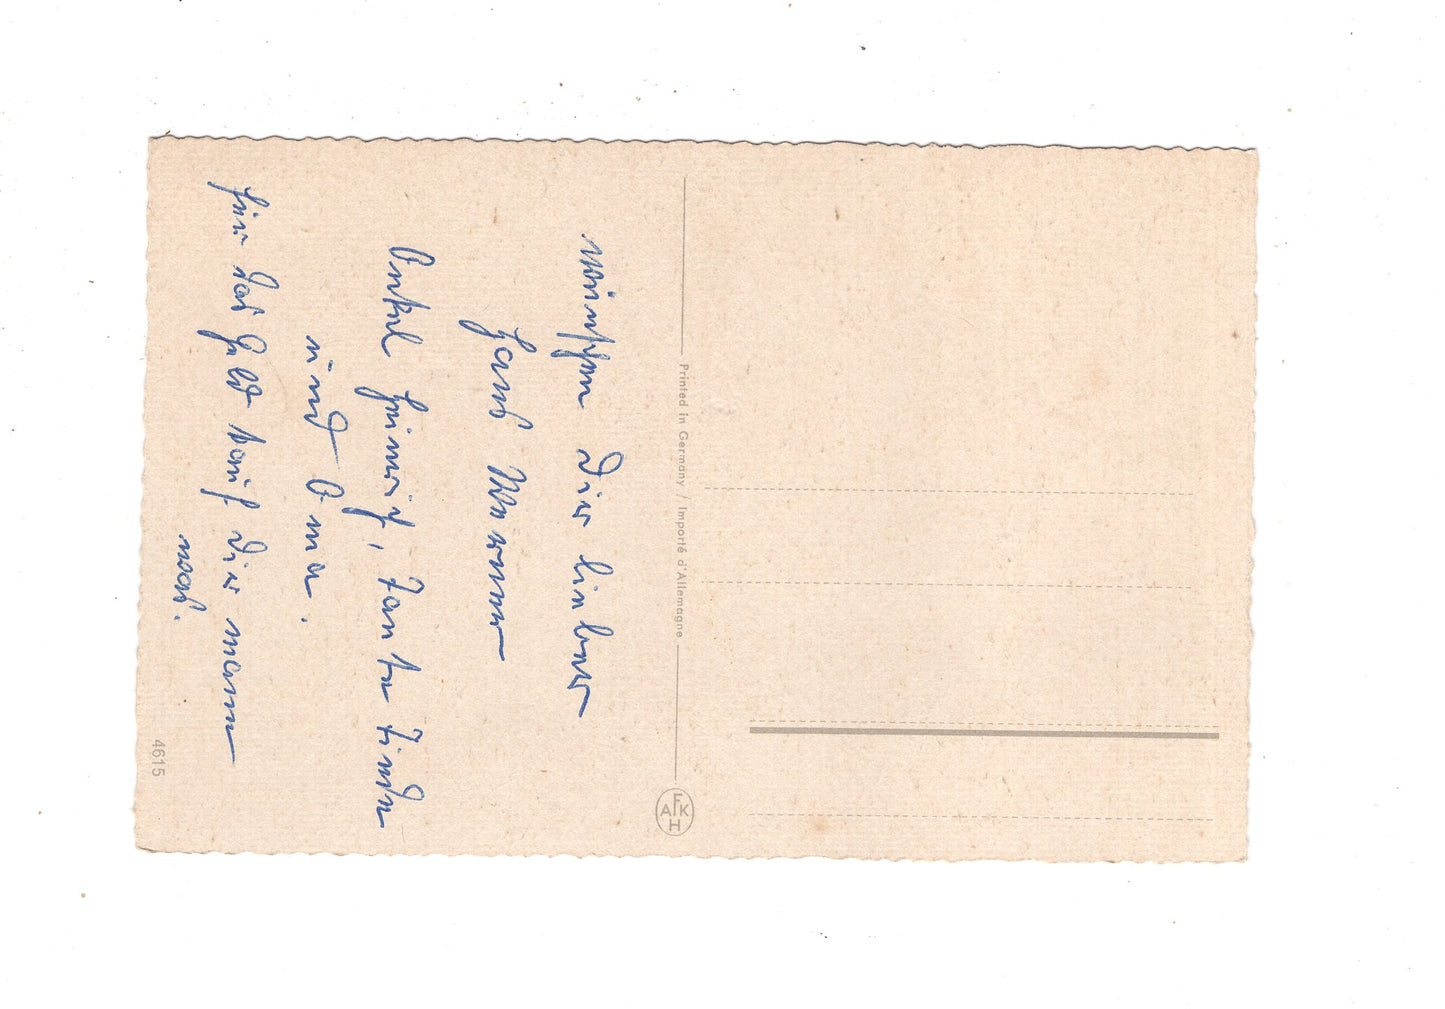 wünschen Dir lieber
Hans Werner
Onkel Heinrich, Tante Linda
und Oma.
Für das Geld kauf Dir mann
was.
Printed in Germany / Importé d'Allemagne
AFKH
4615